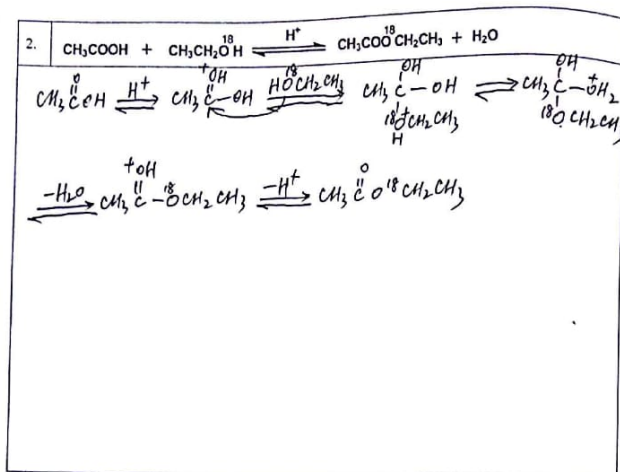 2. CH₃COOH + CH₃CH₂¹⁸OH ⇌ H⁺ CH₃CO¹⁸OCH₂CH₃ + H₂O
CH₃C(=O)OH ⇌ H⁺ CH₃C(=⁺OH)–OH ⇌ H¹⁸OCH₂CH₃ CH₃C(OH)(¹⁸O⁺HCH₂CH₃)–OH ⇌ CH₃C(OH)(¹⁸OCH₂CH₃)–⁺OH₂
⇌ –H₂O CH₃C(=⁺OH)–¹⁸OCH₂CH₃ ⇌ –H⁺ CH₃C(=O)O¹⁸CH₂CH₃